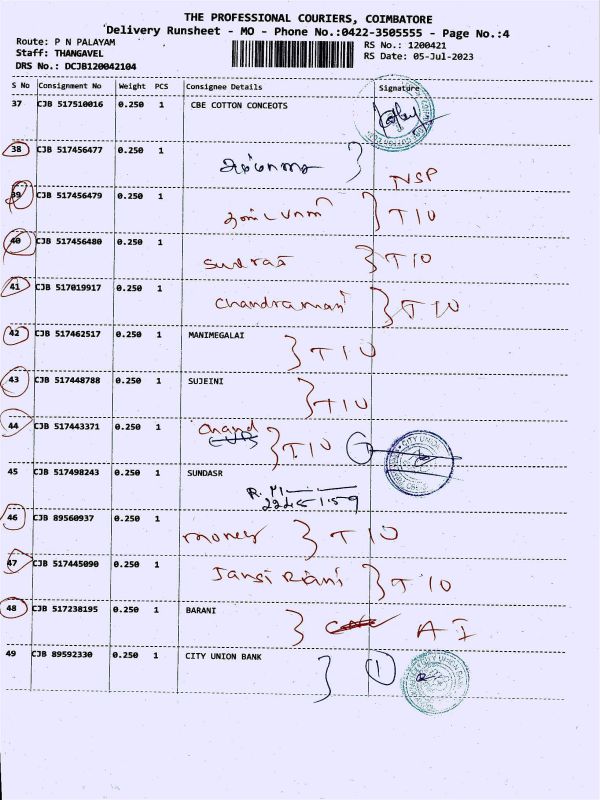 THE PROFESSIONAL COURIERS, COIMBATORE
Delivery Runsheet - MO - Phone No.:0422-3505555 - Page No.:4
Route: P N PALAYAM
RS No.: 1200421
Staff: THANGAVEL
RS Date: 05-Jul-2023
DRS No.: DCJB120042104
S No Consignment No Weight PCS Consignee Details Signature
37 CJB 517510016 0.250 1 CBE COTTON CONCEOTS
38 CJB 517456477 0.250 1
NSP
39 CJB 517456479 0.250 1
T10
40 CJB 517456480 0.250 1
sudras T10
41 CJB 517019917 0.250 1
chandramani T10
42 CJB 517462517 0.250 1 MANIMEGALAI
T10
43 CJB 517448788 0.250 1 SUJEINI
T10
44 CJB 517443371 0.250 1 chand
CUB T10 1 CITY UNION
45 CJB 517498243 0.250 1 SUNDASR
46 CJB 89560937 0.250 1
money T10
47 CJB 517445090 0.250 1
Jansi Riani T10
48 CJB 517238195 0.250 1 BARANI
A I
49 CJB 89592330 0.250 1 CITY UNION BANK 1